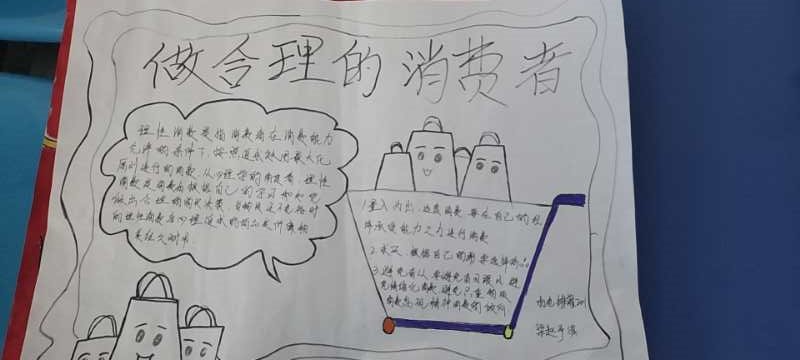 做合理的消费者
理性消费是指消费者在消费能力
允许的条件下,按照追求效用最大化
原则进行的消费,从心理学的角度看,理性
消费是消费者根据自己的学习和知觉
做出合理的购买决策,当物质还不充裕时
的理性消费者心理追求的商品是价廉物
美经久耐用.
1.量入为出,适度消费 要在自己的经
济承受能力之内进行消费
2.求实,根据自己的需要选择商品
3.避免盲从,要避免盲目跟风,避
免情绪化消费,避免只重物质
消费忽视精神消费的